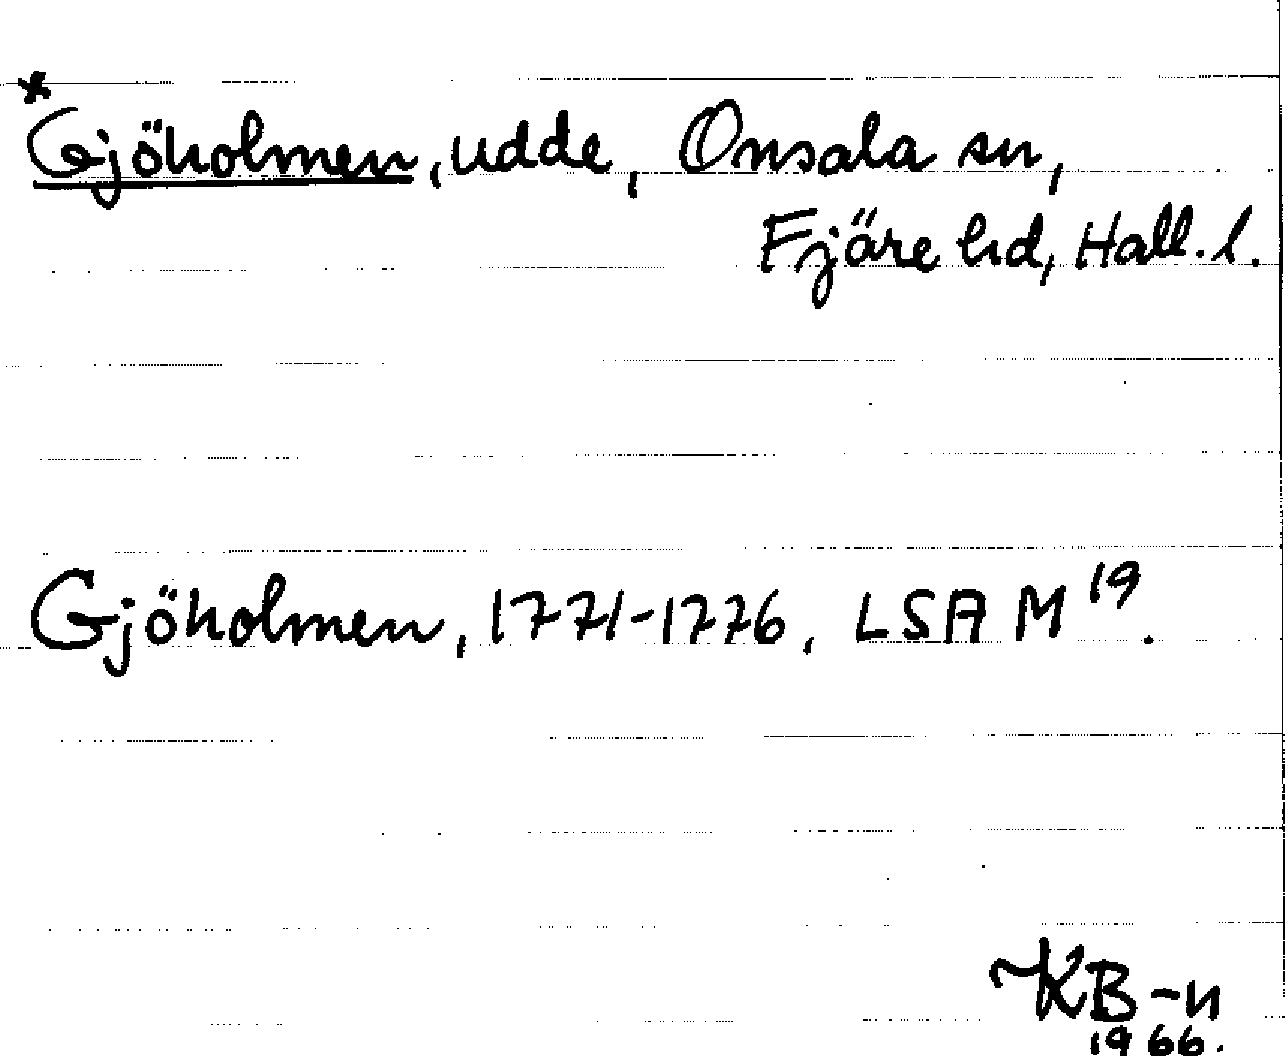 *
Gjöholmen, udde, Onsala sn,
Fjäre hd, Hall. l.
Gjöholmen, 1771-1776, LSA M 19.
KB-n
1966.